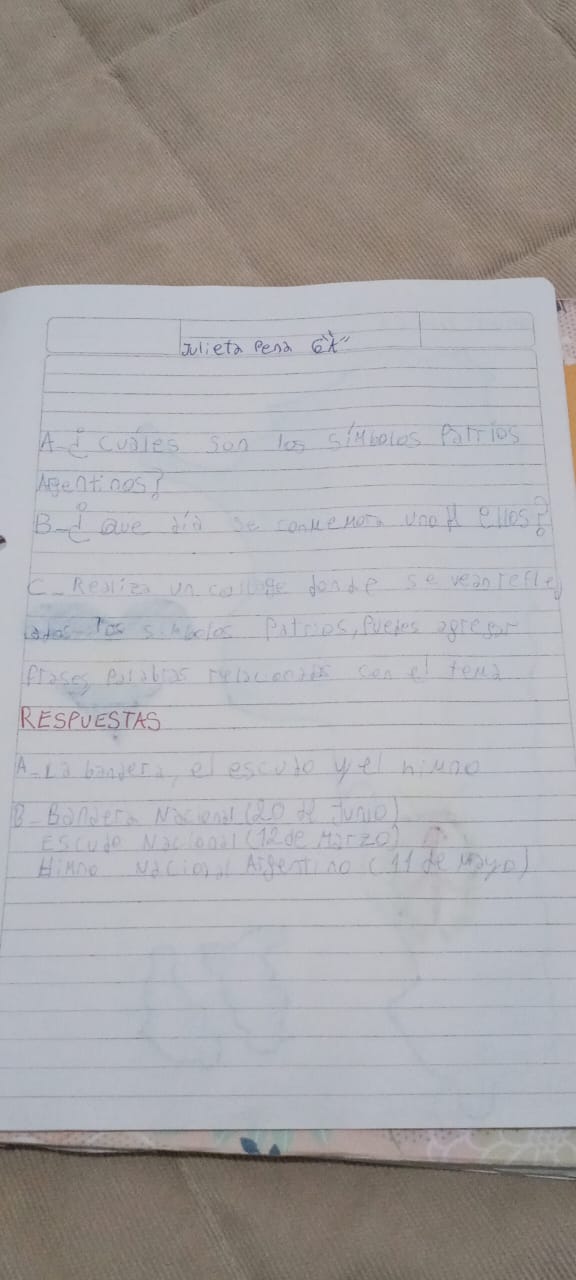 Julieta Pena 6"A"
A-¿Cuáles son los símbolos Patrios
Argentinos?
B-¿Que día se conmemora uno ellos?
C- Realiza un collage donde se vean refle
jados los simbolos Patrios, Puedes agregar
frases, Palabras relacionadas con el tema
RESPUESTAS
A- La bandera, el escudo y el himno
B- Bandera Nacional (20 de Junio)
Escudo Nacional (12 de Marzo)
Himno Nacional Argentino (11 de Mayo)